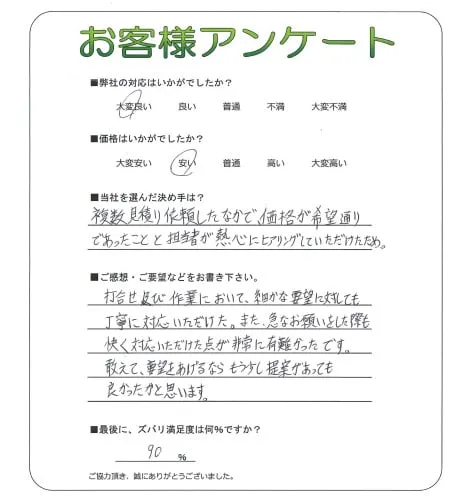 お客様アンケート
■弊社の対応はいかがでしたか?
大変良い 良い 普通 不満 大変不満
■価格はいかがでしたか?
大変安い 安い 普通 高い 大変高い
■当社を選んだ決め手は?
複数見積り依頼したなかで、価格が希望通り
であったことと担当者が熱心にヒアリングしていただけたため。
■ご感想・ご要望などをお書き下さい。
打合せ及び作業において、細かな要望に対しても
丁寧に対応いただけた。また、急なお願いをした際も
快く対応いただけた点が非常に有難かったです。
敢えて、要望をあげるならもう少し提案があっても
良かったかと思います。
■最後に、ズバリ満足度は何%ですか?
90 %
ご協力頂き、誠にありがとうございました。